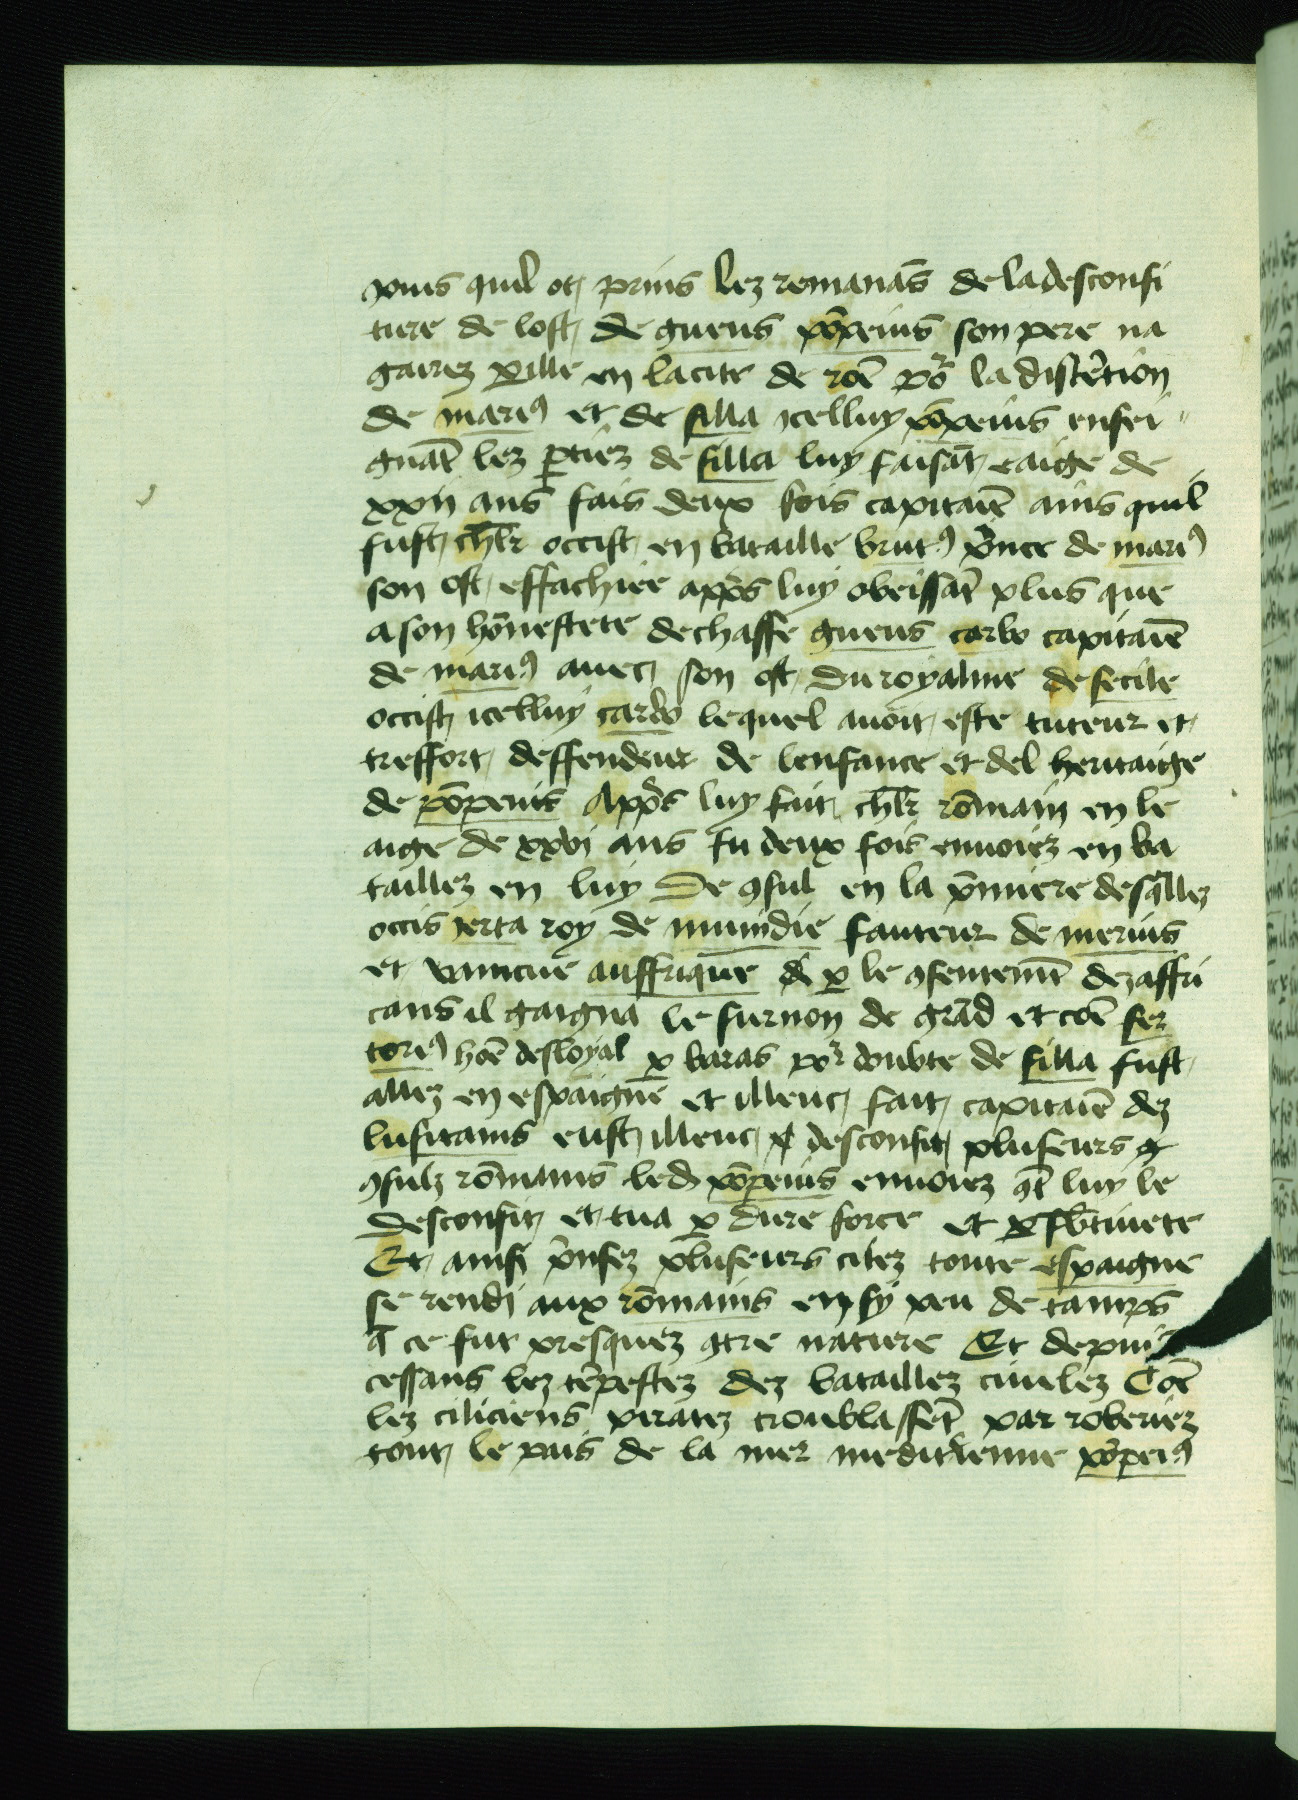 puis quil ot prins lez remanãs de la desconfi
ture de lost de gneus põpeius son pere na
gairez perille en la cite de rõe põr la discẽtion
de mariꝰ et de silla icelluy põpeius ensei
gnãt lez ꝑtiez de silla luy faisãt eaige de
xxii ans fais deux fois capitaiẽ ains quil
fust chl̃r occist en bataille brutꝰ p̃nce de mariꝰ
son ost essachiee app̃s luy obeissãt plus que
a son hõnestete dechasse gneus carbo capitaiẽ
de mariꝰ avec son ost du royalme de secile
occist icelluy carbo lequel avoit este tuteur et
tresfort deffendeur de lenfance et del heritaige
de põpeius App̃s luy fait chl̃r rõmain en le
aige de xxvi ans fu deux fois envoiez en ba
taillez en luy de ꝯsul en la p̃miere desq̃llez
occis ierta roy de numidie fauteur de merius
et vaincue auffrique ꝑ le ꝯsentemẽt dez affri
cans il gaigna le surnon de grãd et cõe ser
toriꝰ hõe desloyal ꝑ baras põr doubte de silla fust
allez en espaigne et illeuc fait capitaiẽ dez
lusitains eust illeuc desconfit pluseurs
ꝯsulz rõmains led põpeius envoiez ꝯt̃ luy le
desconfit et tua ꝑ dure force et ꝑ sb̃tivete
Et ainsi p̃nsez pluseurs citez toute espaigne
se rendi aux rõmains en sy peu de tamps
q̃ ce fut presquez ꝯtre nature Et depuis
cessans lez tẽpestez dez bataillez civilez Cõe
lez ciliciens piratez troublassẽt par roberiez
tout le pais de la mer meditrienne põpeiꝰ